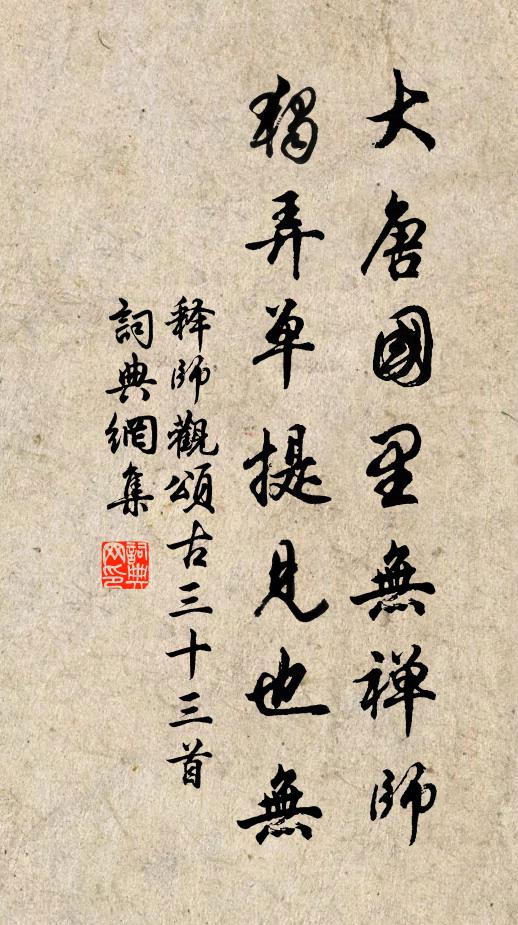 大唐國里無禅師
獨弄单提見也無
释師觀頌古三十三首
詞典網集
詞典网印